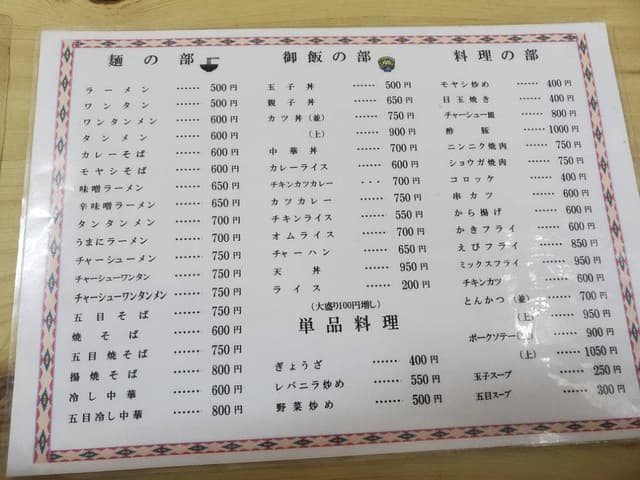 麺の部
ラーメン …… 500円
ワンタン …… 500円
ワンタンメン …… 600円
タンメン …… 600円
カレーそば …… 600円
モヤシそば …… 600円
味噌ラーメン …… 650円
辛味噌ラーメン …… 650円
タンタンメン …… 700円
うまにラーメン …… 700円
チャーシューメン …… 750円
チャーシューワンタン …… 750円
チャーシューワンタンメン …… 750円
五目そば …… 750円
焼そば …… 600円
五目焼そば …… 750円
揚焼そば …… 800円
冷し中華 …… 600円
五目冷し中華 …… 800円
御飯の部
玉子丼 …… 500円
親子丼 …… 650円
カツ丼(並) …… 750円
(上) …… 900円
中華丼 …… 700円
カレーライス …… 600円
チキンカツカレー … 700円
カツカレー …… 750円
チキンライス …… 550円
オムライス …… 700円
チャーハン …… 650円
天丼 …… 950円
ライス …… 200円
(大盛り100円増し)
単品料理
ぎょうざ …… 400円
レバニラ炒め …… 550円
野菜炒め …… 500円
料理の部
モヤシ炒め …… 400円
目玉焼き …… 400円
チャーシュー皿 …… 800円
酢豚 …… 1000円
ニンニク焼肉 …… 750円
ショウガ焼肉 …… 750円
コロッケ …… 400円
串カツ …… 600円
から揚げ …… 600円
かきフライ …… 600円
えびフライ …… 850円
ミックスフライ …… 950円
チキンカツ …… 600円
とんかつ(並) …… 700円
(上) …… 950円
ポークソテー …… 900円
(上) …… 1050円
玉子スープ …… 250円
五目スープ …… 300円